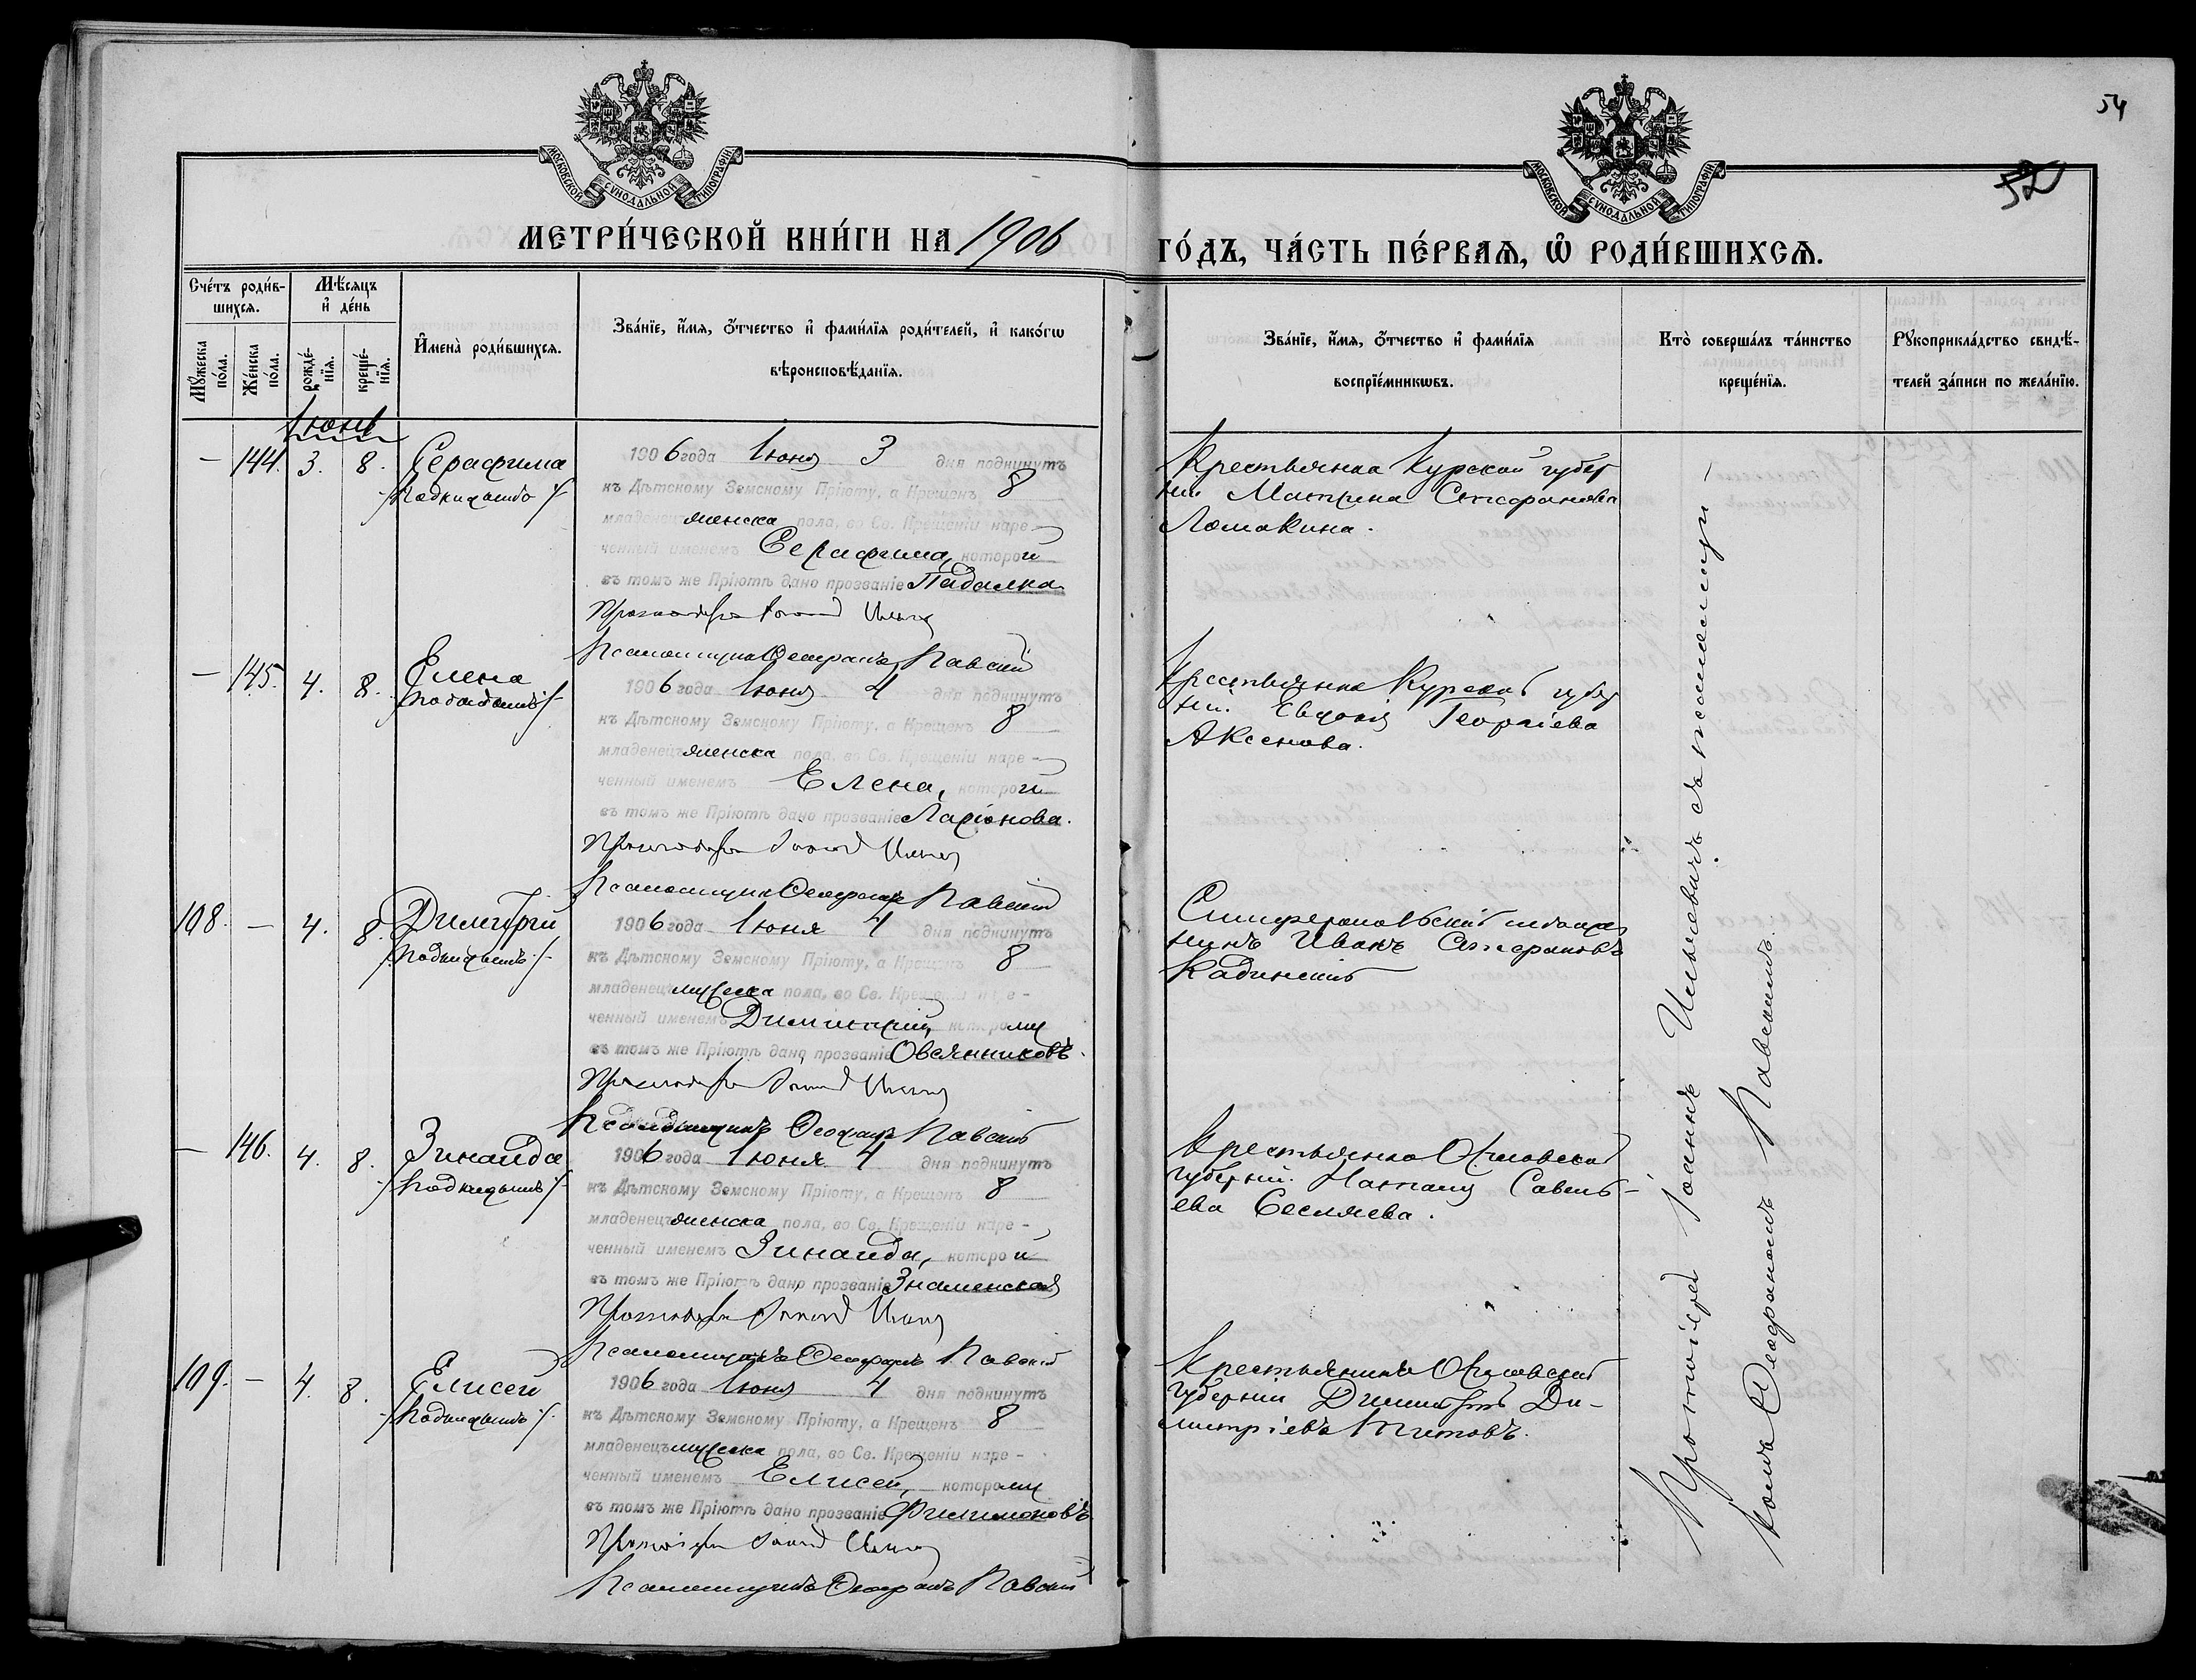 54
52
МОСКОВСКОЙ СѴНОДАЛЬНОЙ ТИПОГРАФІИ
МОСКОВСКОЙ СѴНОДАЛЬНОЙ ТИПОГРАФІИ
МЕТРИ́ЧЕСКОЙ КНИ́ГИ НА 1906 ГО́ДЪ, ЧА́СТЬ ПЕ́РВАѦ, Ѡ҆ РОДИ́ВШИХСѦ.
Сче́тъ роди́в-
шихсѧ.
Мꙋ́жеска по́ла.
Же́нска по́ла.
Мѣ́сѧцъ
и҆ де́нь
рожде́-
нїѧ.
креще́-
нїѧ.
И҆мена̀ роди́вшихсѧ.
Зва́нїе, и҆́мѧ, ѻ҆́тчество и҆ фами́лїѧ роди́телей, и҆ како́гѡ
вѣроисповѣ́данїѧ.
Зва́нїе, и҆́мѧ, ѻ҆́тчество и҆ фами́лїѧ
воспрїе́мникѡвъ.
Кто̀ соверша́лъ та́инство
креще́нїѧ.
Рꙋкоприкла́дство свидѣ́-
телей за́писи по жела́нїю.
Іюнь
— 144. 3. 8. Серафима
подкидышъ
1906 года Іюня 3 дня подкинутъ
къ Дѣтскому Земскому Пріюту, а Крещенъ 8
младенецъ женска пола, во Св. Крещеніи наре-
ченный именемъ Серафима, которой
въ томъ же Пріютѣ дано прозваніе Падалка
Псаломщикъ Феофанъ Павскій
Крестьянка Курской губер
ніи Матрена Стефанова
Ломакина.
— 145. 4. 8. Елена
подкидышъ
1906 года Іюня 4 дня подкинутъ
къ Дѣтскому Земскому Пріюту, а Крещенъ 8
младенецъ женска пола, во Св. Крещеніи наре-
ченный именемъ Елена, которой
въ томъ же Пріютѣ дано прозваніе Ларіонова.
Псаломщикъ Феофанъ Павскій
Крестьянка Курской губер
ніи Георгіева
Аксенова.
108. — 4. 8. Димитрій
подкидышъ
1906 года Іюня 4 дня подкинутъ
къ Дѣтскому Земскому Пріюту, а Крещенъ 8
младенецъ мужеска пола, во Св. Крещеніи наре-
ченный именемъ Димитрій, которому
въ томъ же Пріютѣ дано прозваніе Овсянниковъ.
Псаломщикъ Феофанъ Павскій
Симферопольскій мѣща
нинъ Иванъ Стефановъ
Кадинскій
— 146. 4. 8. Зинаида
подкидышъ
1906 года Іюня 4 дня подкинутъ
къ Дѣтскому Земскому Пріюту, а Крещенъ 8
младенецъ женска пола, во Св. Крещеніи наре-
ченный именемъ Зинаида, которой
въ томъ же Пріютѣ дано прозваніе Знаменская
Псаломщикъ Феофанъ Павскій
Крестьянка Орловской
губерніи Савель-
ева
109. — 4. 8. Елисей
подкидышъ
1906 года Іюня 4 дня подкинутъ
къ Дѣтскому Земскому Пріюту, а Крещенъ 8
младенецъ мужеска пола, во Св. Крещеніи наре-
ченный именемъ Елисей, которому
въ томъ же Пріютѣ дано прозваніе Филимоновъ
Псаломщикъ Феофанъ Павскій
Крестьянинъ Орловской
губерніи Димитрій Ди-
митріевъ Титовъ.
Протоіерей Іоаннъ Ильчевичъ съ псаломщи-
комъ Феофаномъ Павскимъ.